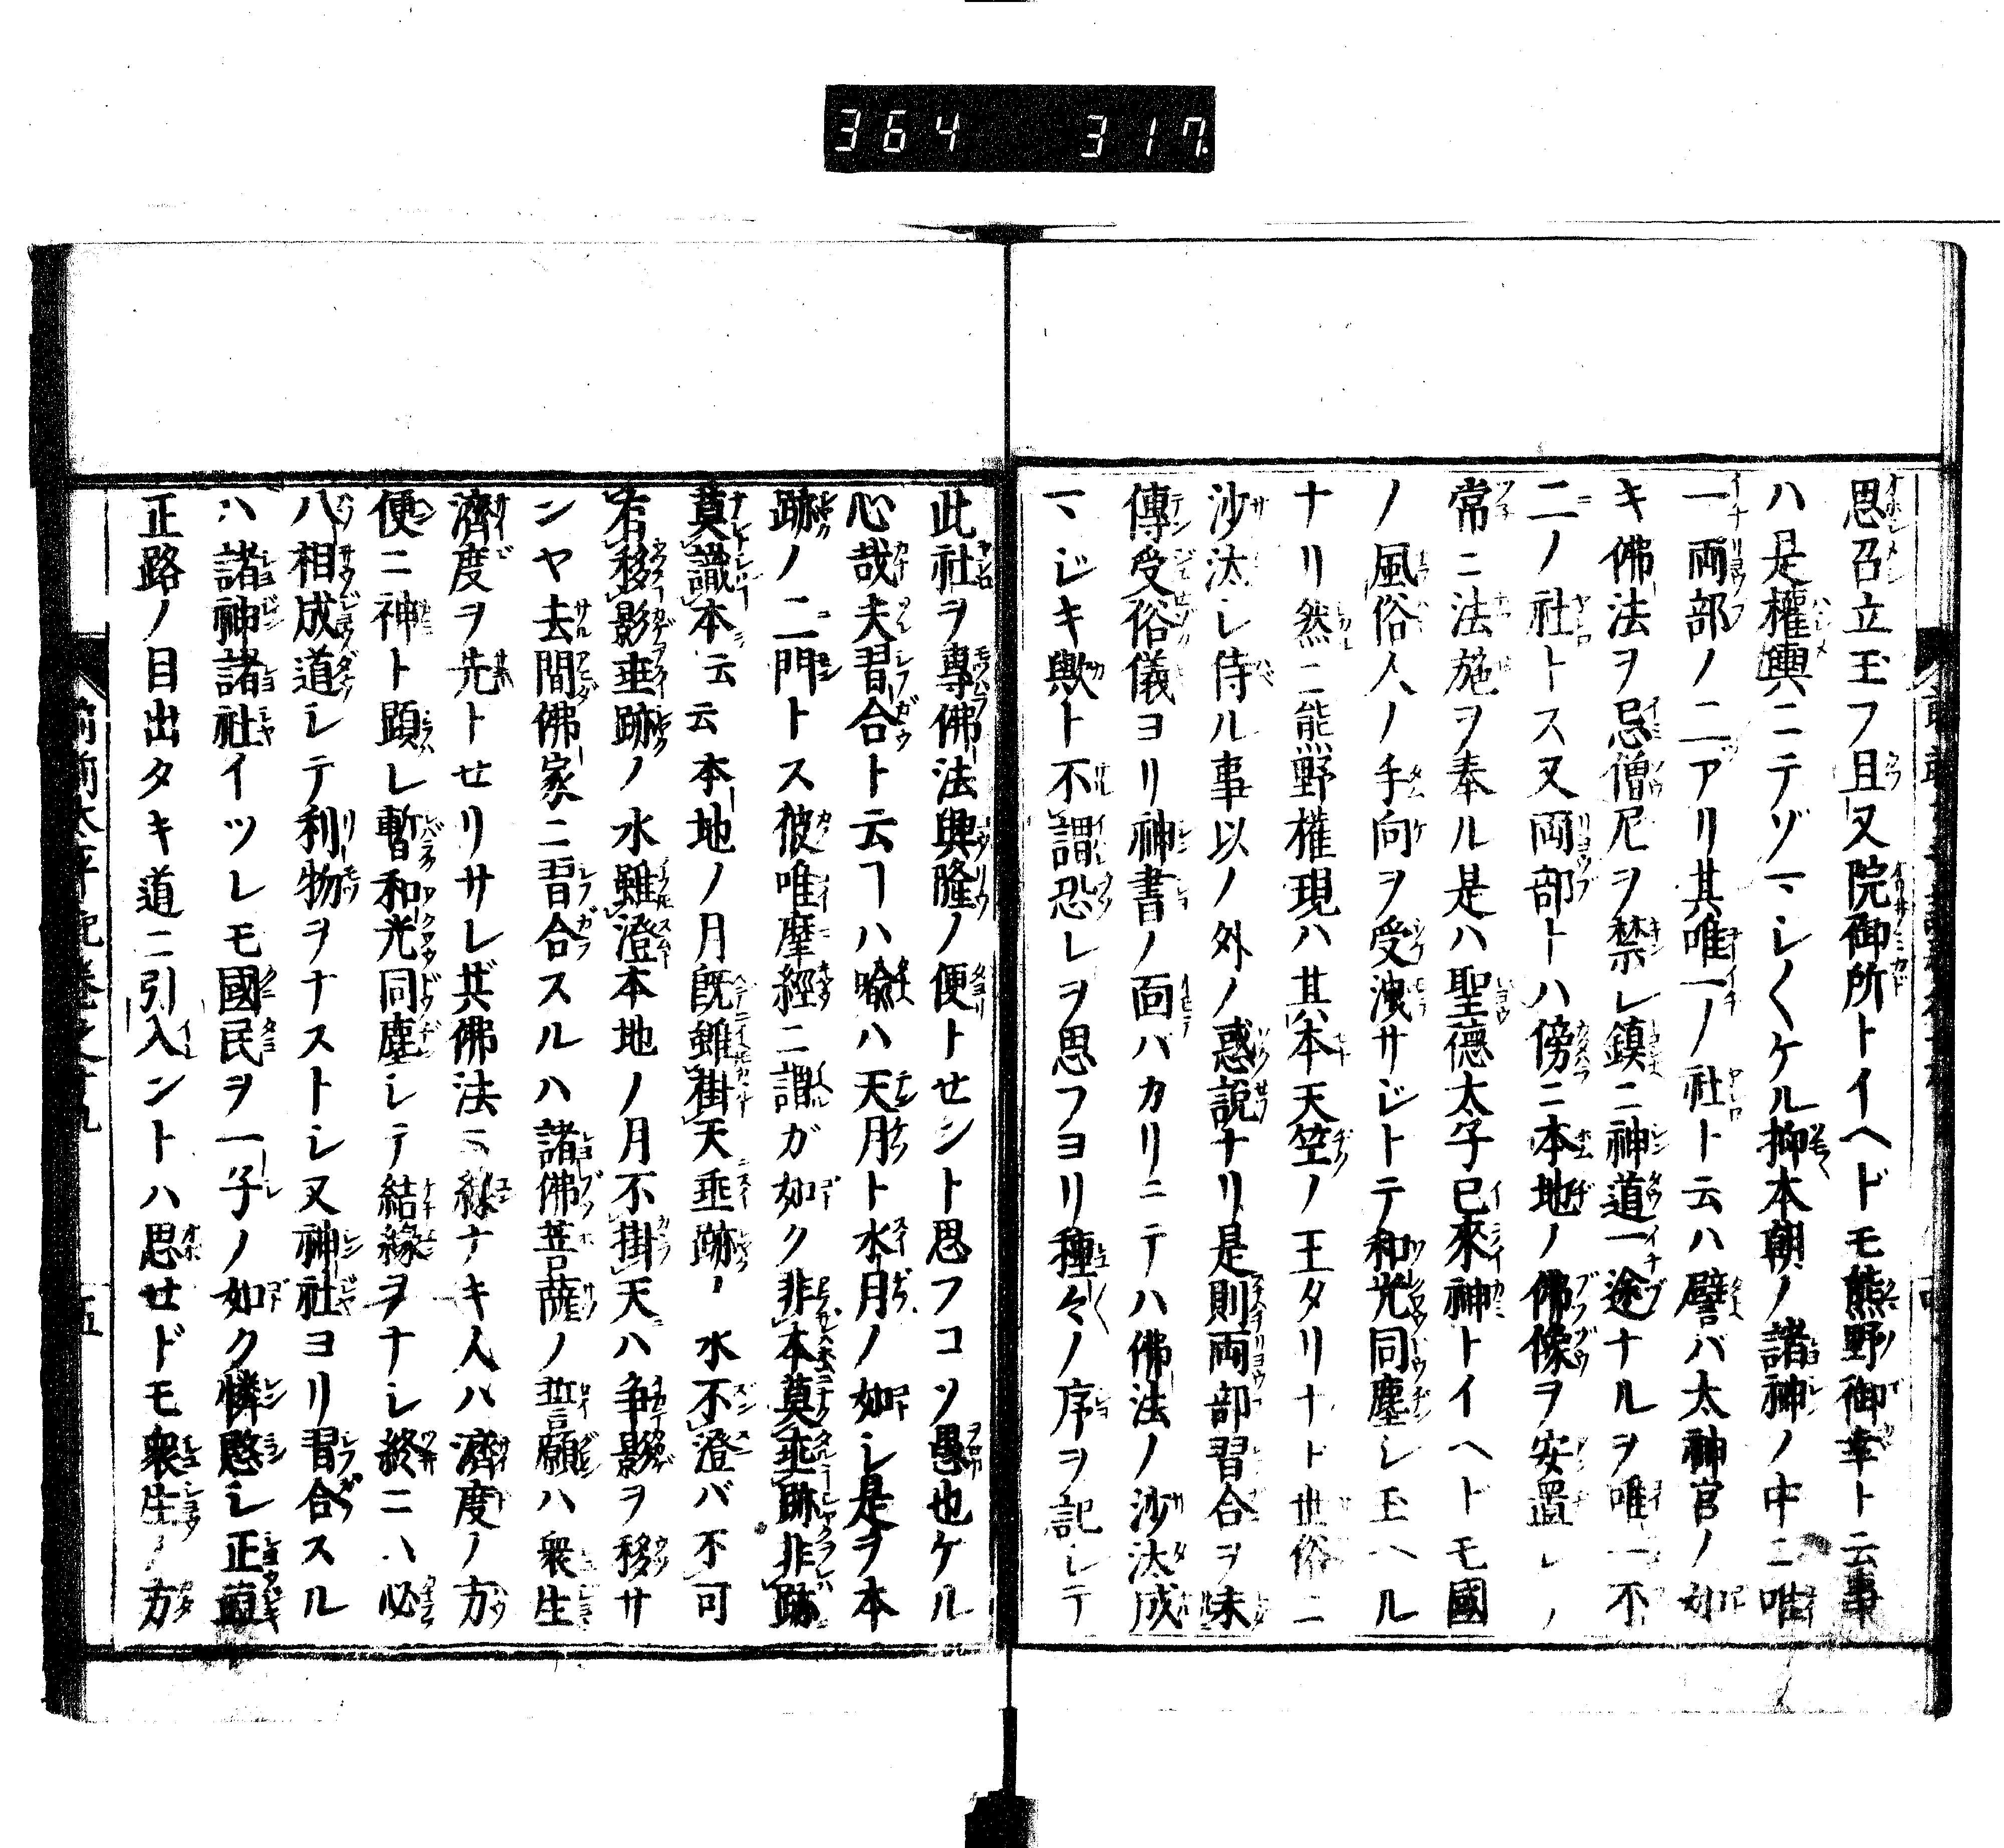 364 317.
思召立玉フ且又院御所トイヘドモ熊野御幸ト云事
ハ是權輿ニテゾマシ〱ケル抑本朝ノ諸神ノ中ニ唯
一両部ノ二ツアリ其唯一ノ社ト云ハ譬バ太神宮ノ如
キ佛法ヲ忌僧尼ヲ禁シ鎮ニ神道一途ナルヲ唯一不
二ノ社トス又両部トハ傍ニ本地ノ佛像ヲ安置シノ
常ニ法施ヲ奉ル是ハ聖德太子已來神トイヘドモ國
ノ風俗人ノ手向ヲ受洩サジトテ和光同塵シ玉ヘル
ナリ然ニ熊野權現ハ其本天竺ノ王タリナト世俗ニ
沙汰シ侍ル事以ノ外ノ惑説ナリ是則両部習合ヲ未
傳受俗儀ヨリ神書ノ面バカリニテハ佛法ノ沙汰成
マジキ歟ト不謂恐レヲ思フヨリ種々ノ序ヲ記シテ
此社ヲ專佛法興隆ノ便トセント思フコソ愚也ケル
心哉夫習合ト云ヿハ喩ハ天月ト水月ノ如シ是ヲ本
跡ノ二門トス彼唯摩經ニ謂ガ如ク非本莫垂跡非跡
莫識本云云本地ノ月既雖掛天垂跡ノ水不澄バ不可
宿移影垂跡ノ水雖澄本地ノ月不掛天ハ争影ヲ移サ
ンヤ去間佛家ニ習合スルハ諸佛菩薩ノ誓願ハ衆生
濟度ヲ先トせリサレ共佛法ニ緣ナキ人ハ濟度ノ方
便ニ神ト顕レ暫和光同塵シテ結緣ヲナシ終ニハ必
八相成道シテ利物ヲナストシ又神社ヨリ習合スル
ハ諸神諸社イツレモ國民ヲ一子ノ如ク憐愍シ正直
正路ノ目出タキ道ニ引入ントハ思せドモ衆生ノ方
前前太平記卷之十九
五